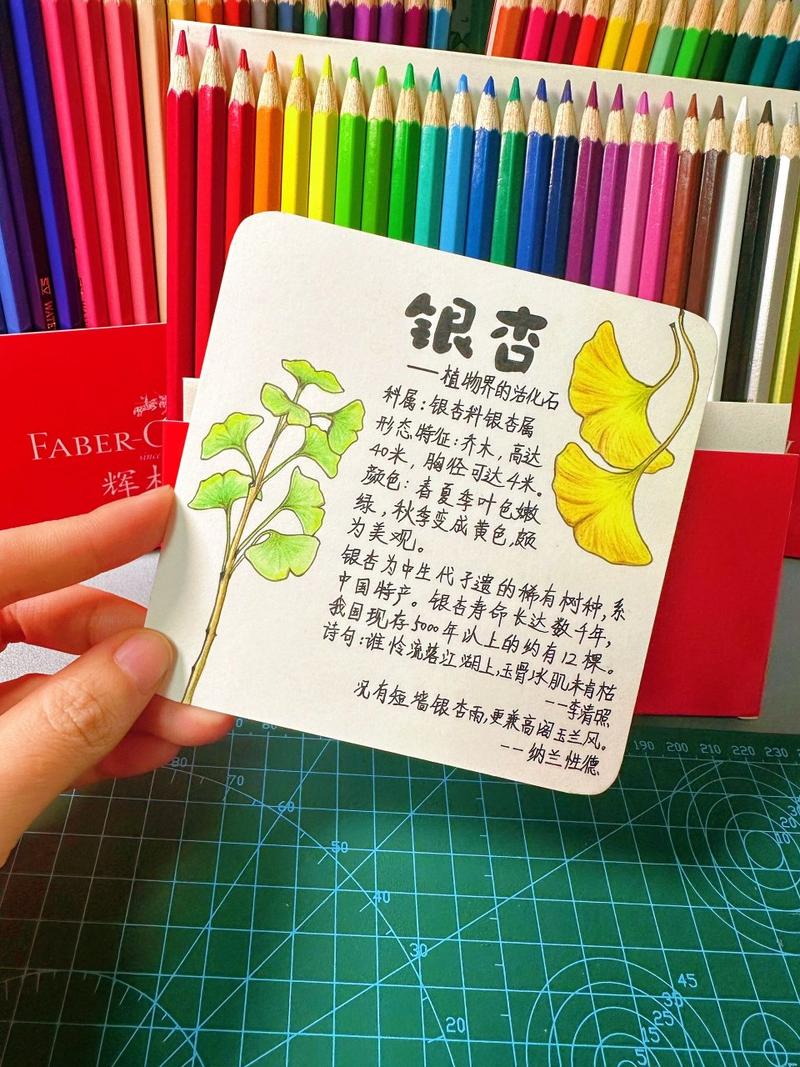 银杏
——植物界的活化石
科属:银杏科银杏属
形态特征:乔木,高达
40米,胸径可达4米。
颜色:春夏季叶色嫩
绿,秋季变成黄色,颇
为美观。
银杏为中生代孑遗的稀有树种,系
中国特产。银杏寿命长达数千年,
我国现存5000年以上的约有12棵。
诗句:谁怜流落江湖上,玉骨冰肌未肯枯
——李清照
况有短墙银杏雨,更兼高阁玉兰风。
——纳兰性德
FABER-C
since
辉柏
80
70
60
50
40
30
20
190 200 210 220 230
10
45
35
25
15
5